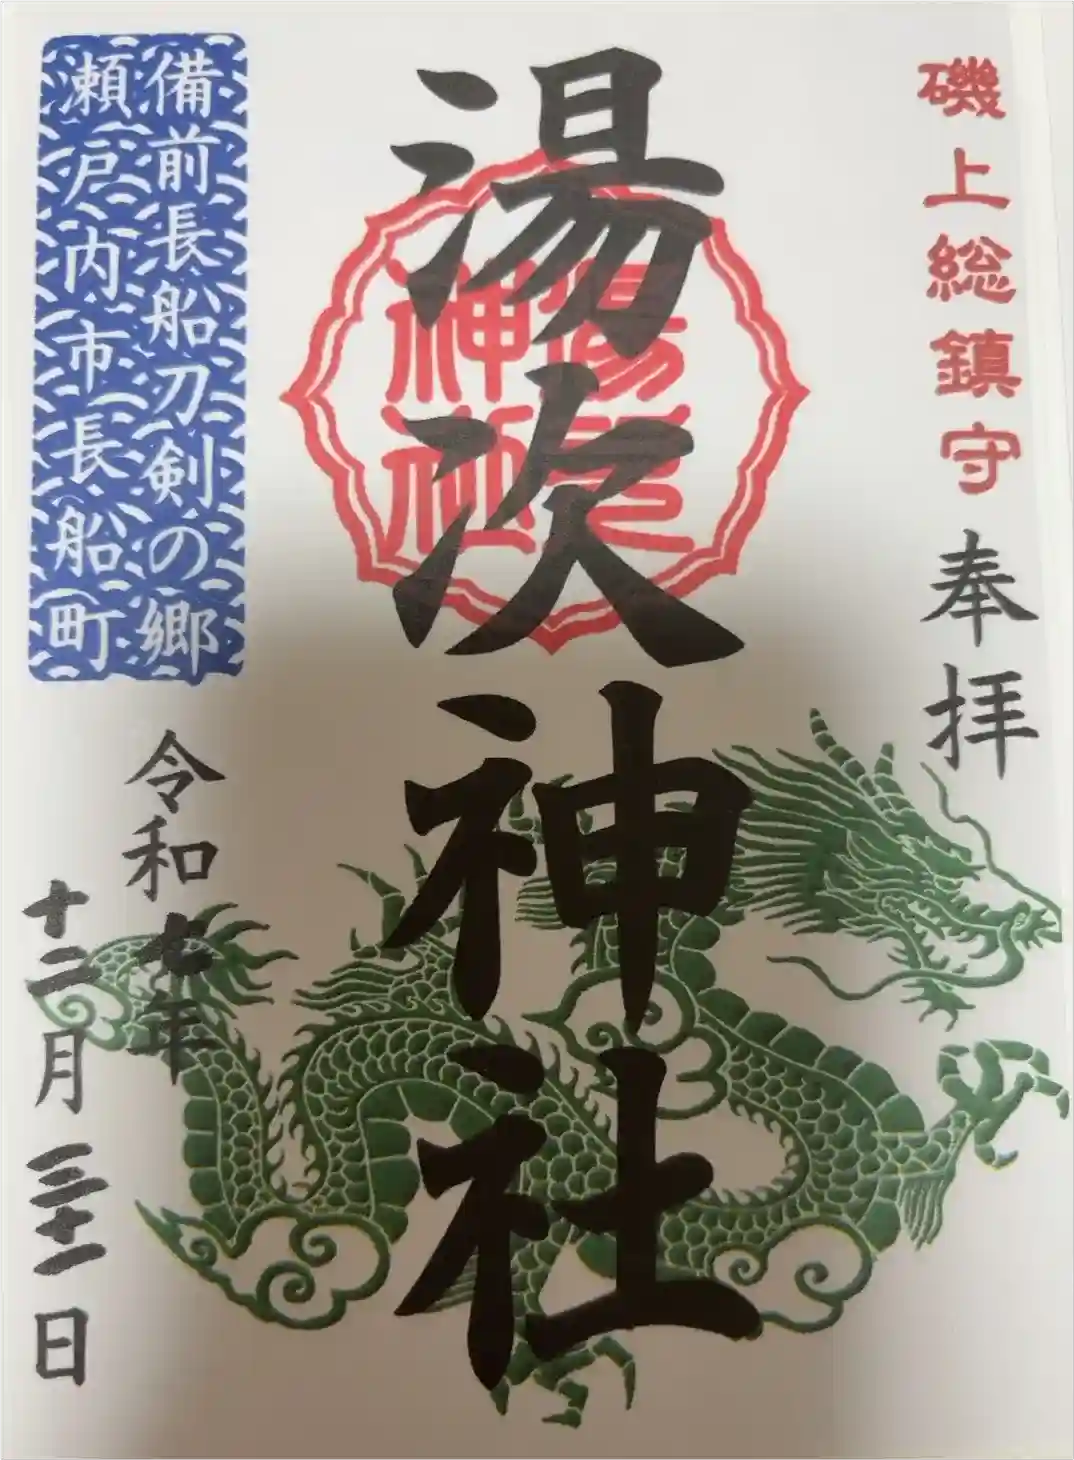 磯上総鎮守
奉拝
湯次神社
湯次
神社
備前長船刀剣の郷
瀬戸内市長船町
令和七年
十二月三十一日